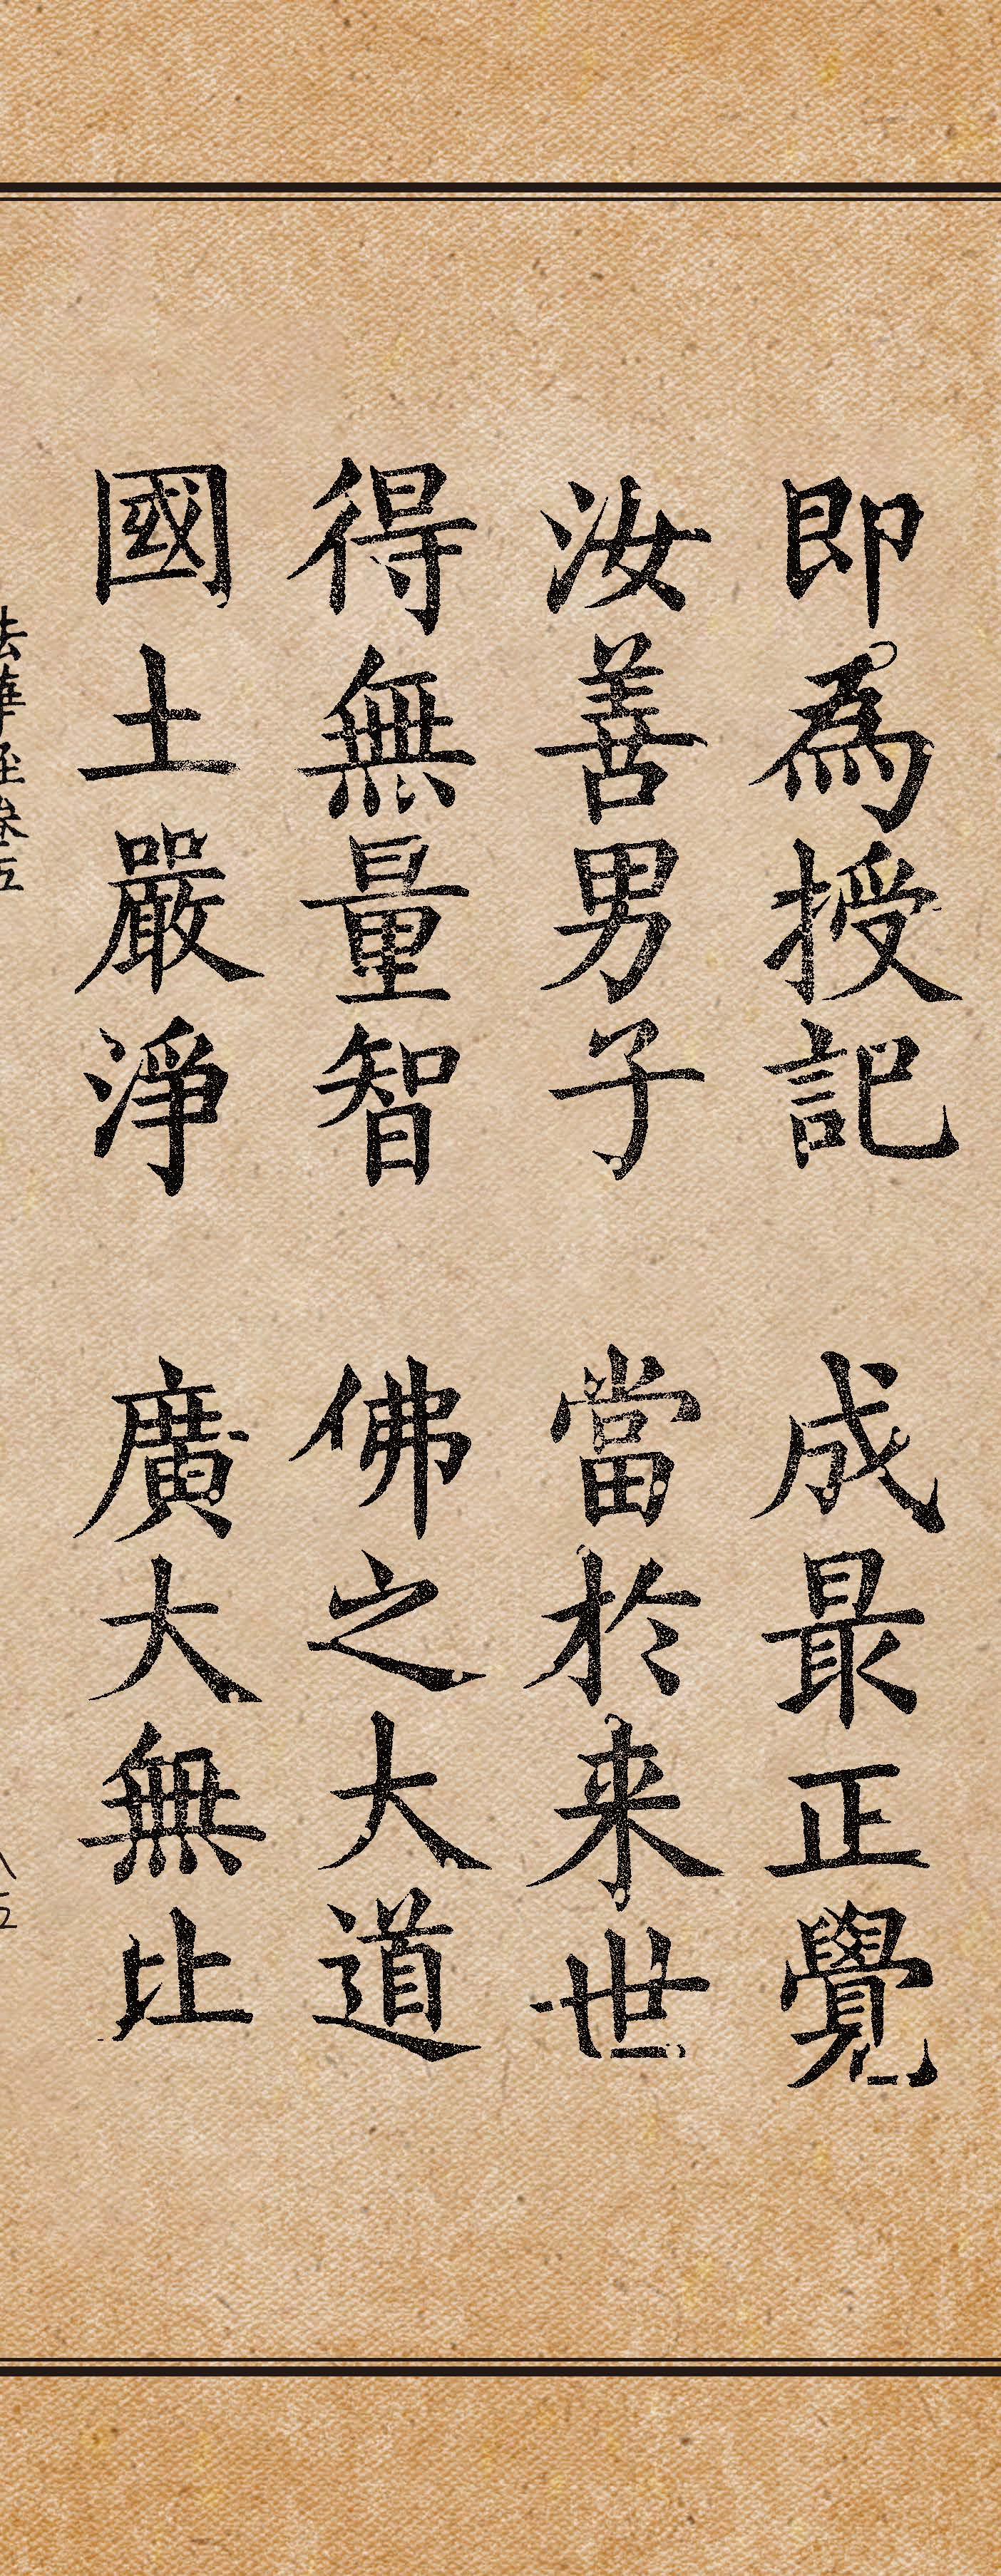 即為授記　成最正覺
汝善男子　當於来世
得無量智　佛之大道
國土嚴淨　廣大無比
法華經卷五